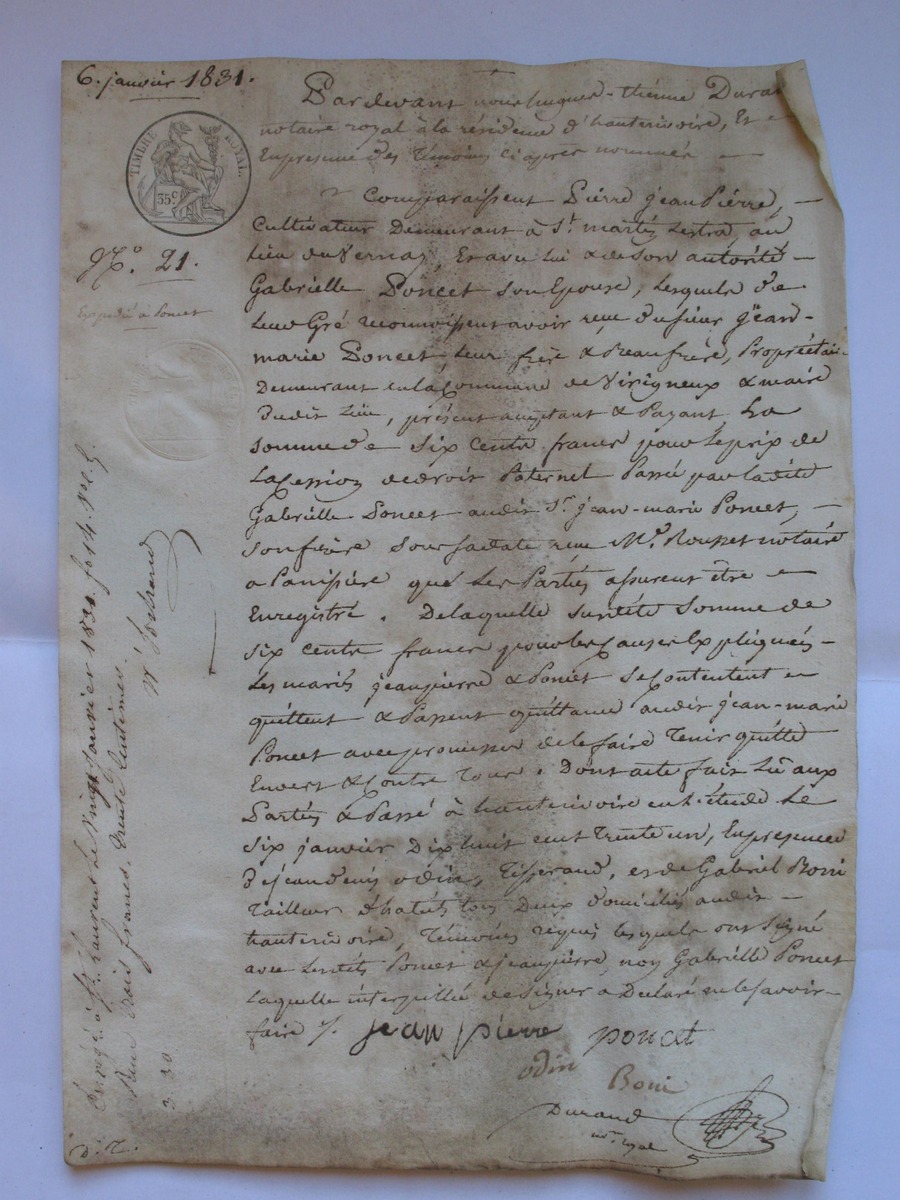 6. janvier 1831.
TIMBRE ROYAL.
35c
No. 21.
Expedié à Poncet
Pardevant nous hugues-thiéne Durand
notaire royal à la résidence d'hauterivoire, Et
En presence des Témoins ci après nommés
Comparaissent Pierre jeanPierre,
Cultivateur Demeurant à St. martin Lestra, au
Lieu du Vernay, Et avec lui & de son autorité
Gabrielle Poncet son Epouse, Lesquels de
Leur Gré reconnoissent avoir reçu du sieur jean-
marie Poncet, Leur frère & Beaufrère, Propriétaire
Demeurant en la Commune de Virigneux & maire
Dudit Lieu, présent acceptant & Payant, La
somme de six cents francs pour le prix de
La Cession de droit Paternel Passée par ladite
Gabrielle Poncet audit Sr. jean-marie Poncet,
son frère sous sa date reçue Me. Rousset notaire
a Panissière que Les Parties assurent être
Enregistré. De laquelle susdite somme de
six cents francs pour les Causes Expliquées
Les mariés jeanpierre & Poncet se Contentent
quittent & Passent quittance audit jean-marie
Poncet avec promesse de le faire Tenir quitte
Envers & Contre Tous. Dont acte fait Lu aux
Parties & Passé à hauterivoire en L'étude Le
six janvier Dix huit cent Trente un, En presence
De jean denis odin, Tisserand, et de Gabriel Boni
Tailleur d'habits tous Deux domiciliés audit
hauterivoire, Témoins requis lesquels ont signé
avec Lesdits Poncet & jeanpierre, non Gabrielle Poncet
Laquelle interpellée de signer a Déclaré ne le savoir
faire
jean pierre poncet
odin
Boni
Durand
nre. royal
Enregé. à St. Laurent Le vingt janvier 1831 fo 14
Reçu trois francs trente Centimes.
3 30
D. T.